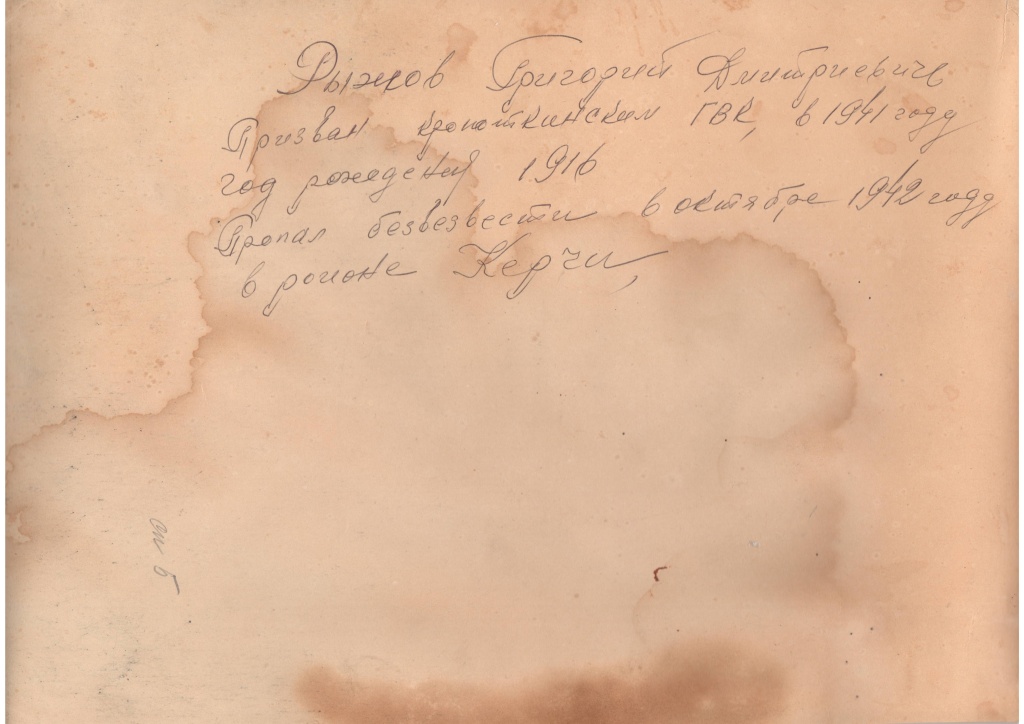 Рыжков Григорий Дмитриевиче
Призван кропоткинским ГВК, в 1941 году
год рождения 1916
Пропал безвезвести в октябре 1942 году
в районе Керчи,